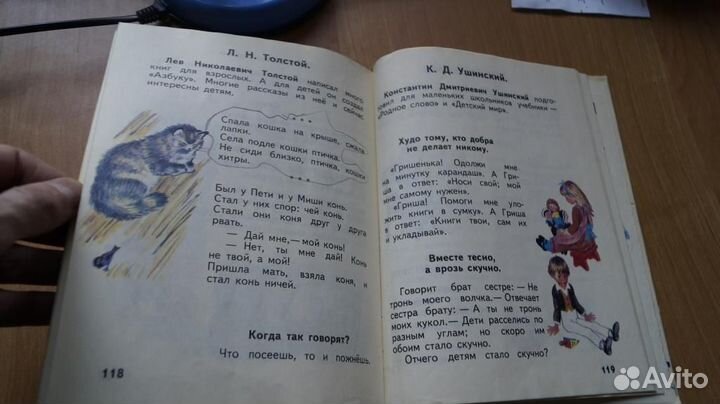 Л. Н. Толстой.
Лев Николаевич Толстой написал много
книг для взрослых. А для детей он создал
«Азбуку». Многие рассказы из неё и сейчас
интересны детям.
Спала кошка на крыше, сжала
лапки.
Села подле кошки птичка.
Не сиди близко, птичка, кошки
хитры.
Был у Пети и у Миши конь.
Стал у них спор: чей конь.
Стали они коня друг у друга
рвать.
— Дай мне, — мой конь!
— Нет, ты мне дай! Конь
не твой, а мой!
Пришла мать, взяла коня, и
стал конь ничей.
Когда так говорят?
Что посеешь, то и пожнёшь.
118
К. Д. Ушинский.
Константин Дмитриевич Ушинский подго-
товил для маленьких школьников учебники —
«Родное слово» и «Детский мир».
Худо тому, кто добра
не делает никому.
«Гришенька! Одолжи мне
на минутку карандаш». А Гри-
ша в ответ: «Носи свой; мой
мне самому нужен».
«Гриша! Помоги мне уло-
жить книги в сумку». А Гриша
в ответ: «Книги твои, сам их
и укладывай».
Вместе тесно,
а врозь скучно.
Говорит брат сестре: — Не
тронь моего волчка. — Отвечает
сестра брату: — А ты не тронь
моих кукол. — Дети расселись по
разным углам; но скоро им
обоим стало скучно.
Отчего детям стало скучно?
119
Avito